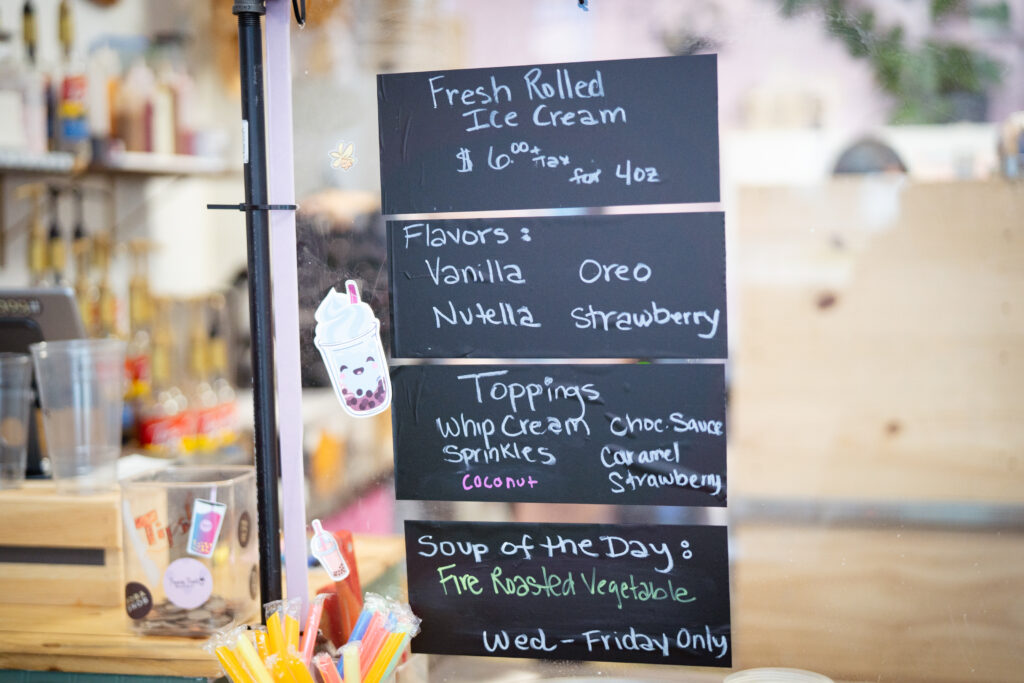 Fresh Rolled
Ice Cream
$6.00 + Tax for 4oz
Flavors:
Vanilla Oreo
Nutella Strawberry
Toppings
Whip Cream Choc. Sauce
Sprinkles Caramel
Coconut Strawberry
Soup of the Day:
Fire Roasted Vegetable
Wed - Friday Only
Tips